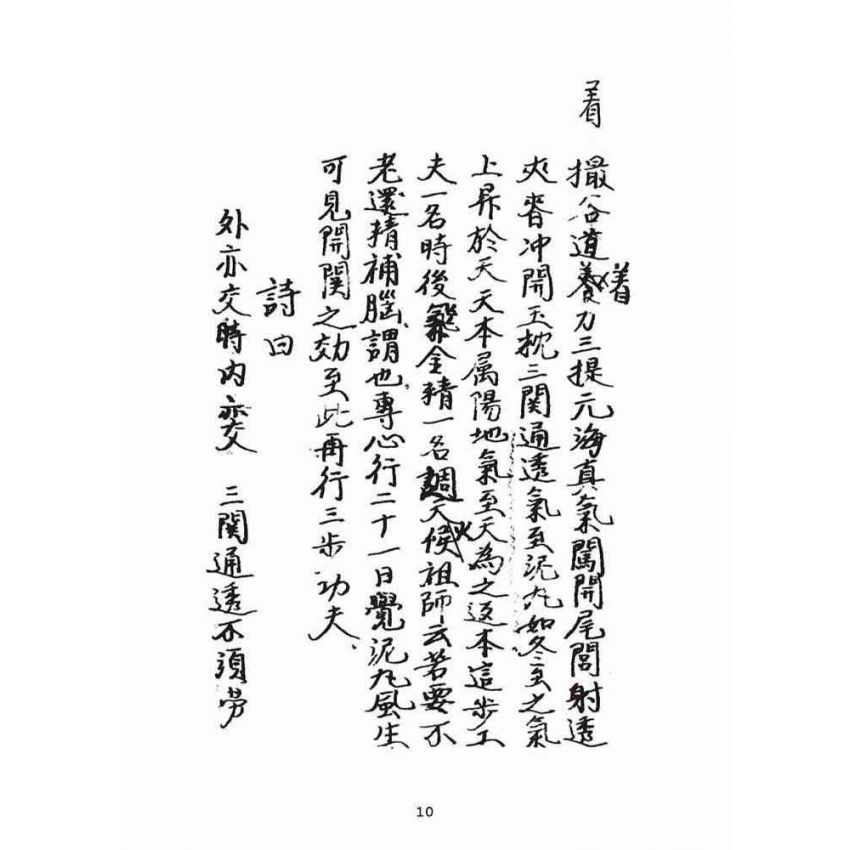 着
撮谷道着力三提元海真氣闖開尾閭射透
夾脊冲開玉枕三関通透氣至泥丸如冬至之氣
上昇於天天本属陽地氣至天為之返本這步工
夫一名時後飛金精一名調天候祖師云若要不
老還精補腦謂也專心行二十一日覺泥丸風生
可見開関之効至此再行三步功夫、
詩曰
外亦交時内亦交 三関通透不須劳
10